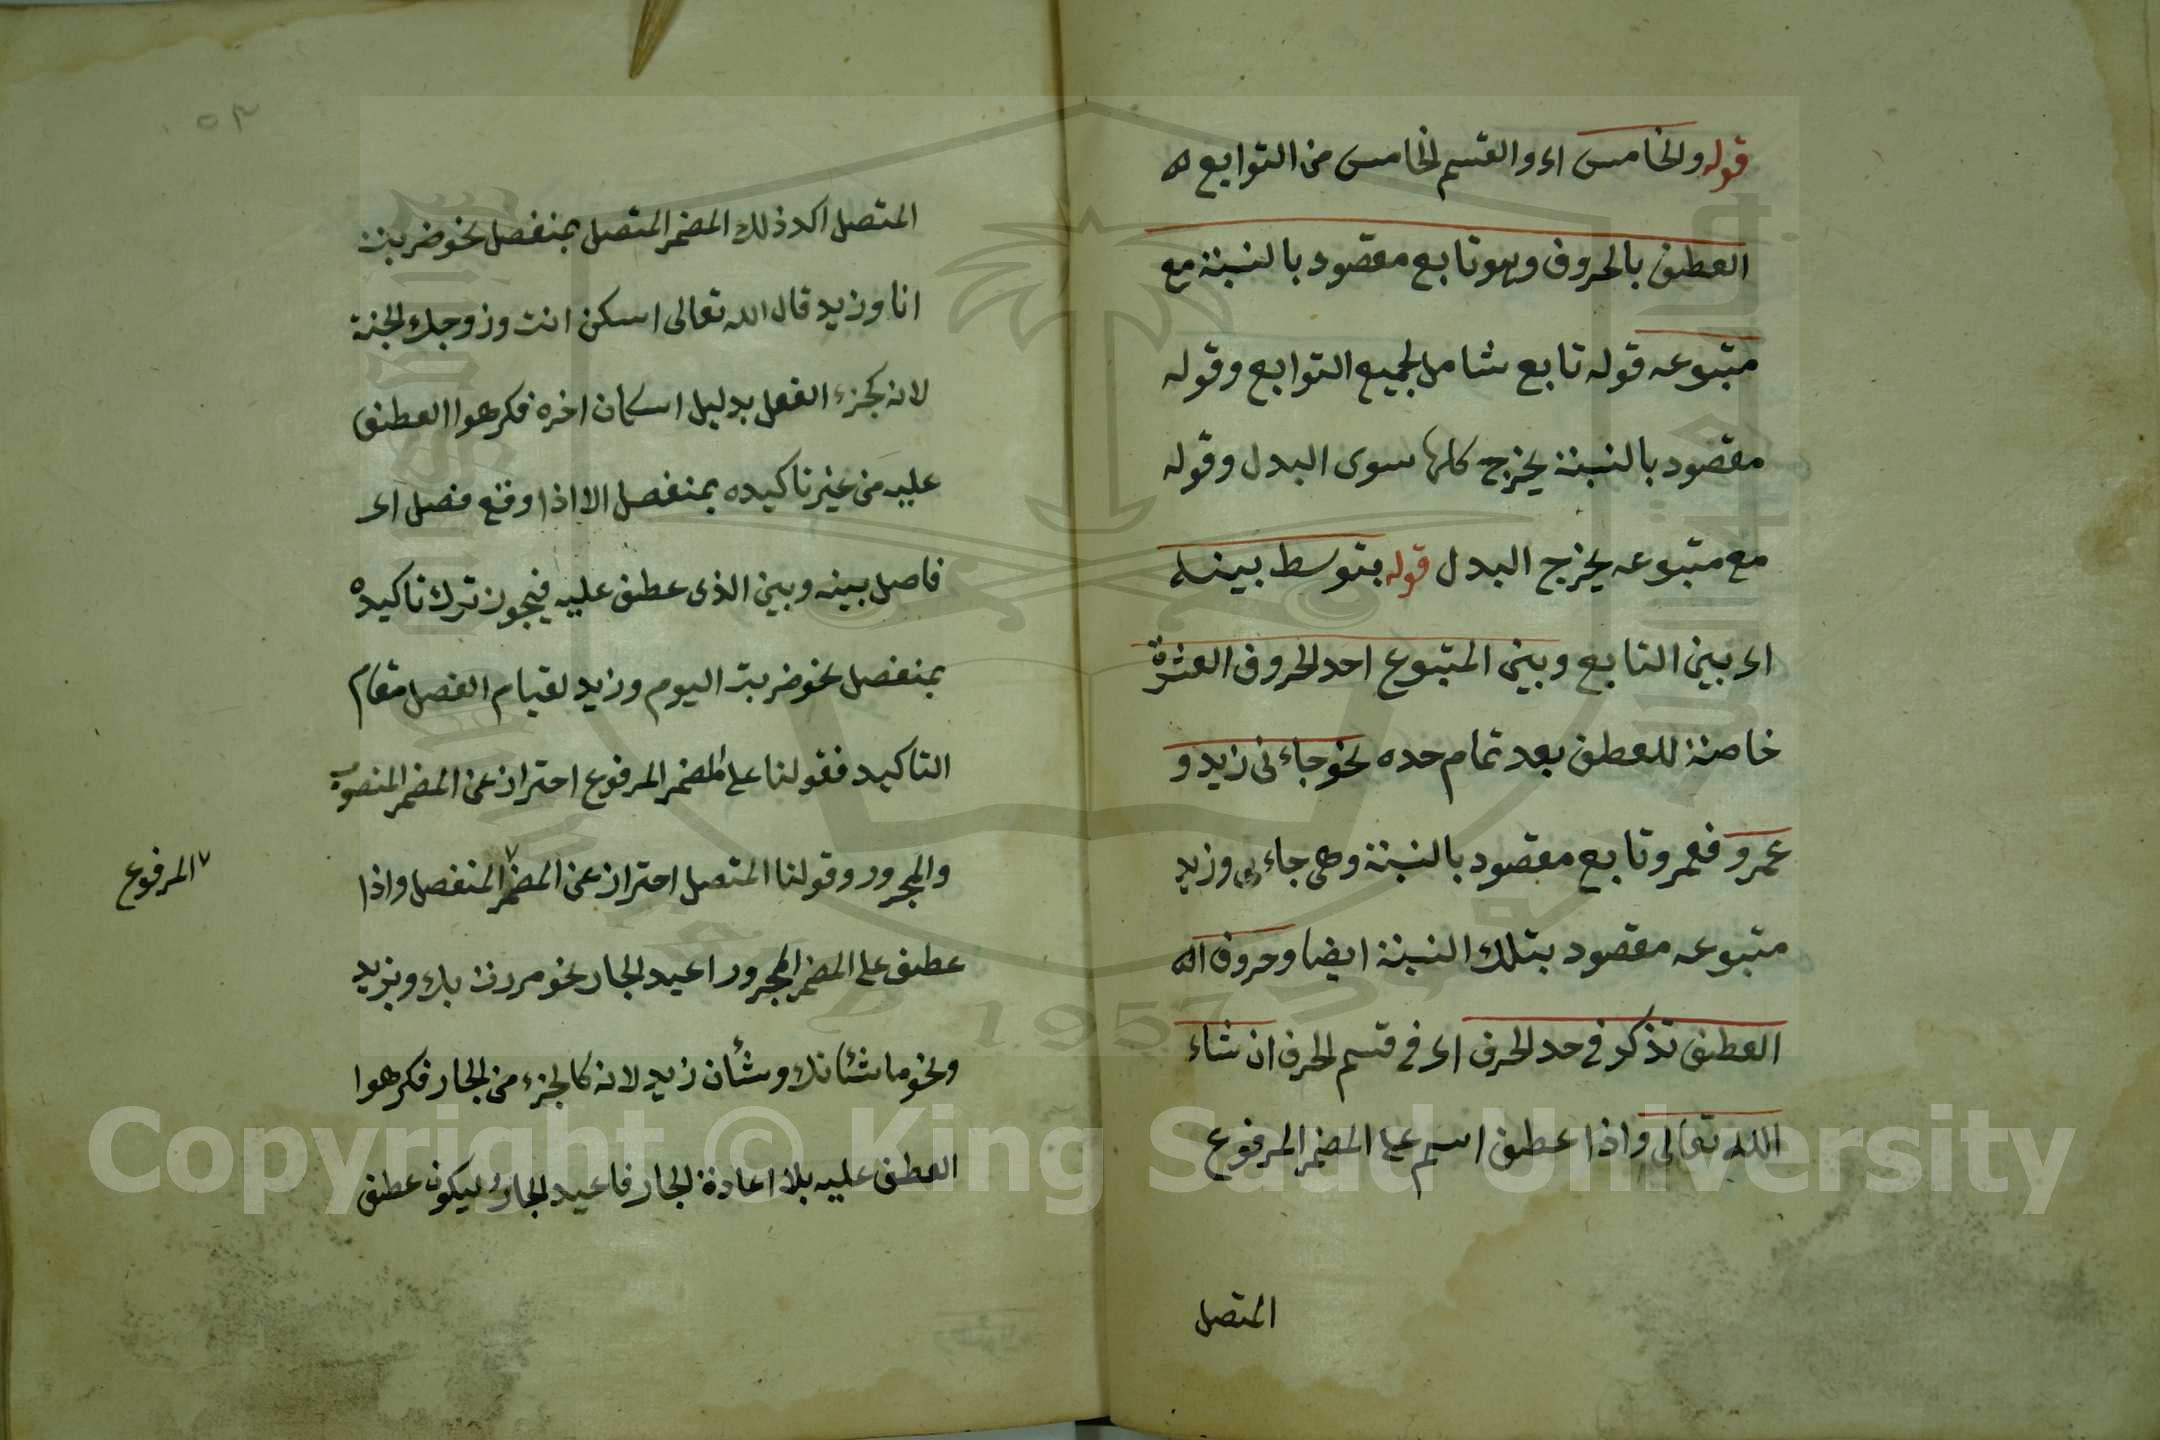 قوله والخامس اى والقسم الخامس من التوابع له
العطف بالحروف وهو تابع مقصود بالنسبة مع
متبوعه قوله تابع شامل لجميع التوابع وقوله
مقصود بالنسبة يخرج كلها سوى البدل وقوله
مع متبوعه يخرج البدل قوله بتوسط بينه
اى بين التابع وبين المتبوع احد الحروف العشرة
خاصة للعطف بعد تمام حده نحو جاءنى زيد و
عمرو فعمرو تابع مقصود بالنسبة وهى جاءنى وزيد
متبوعه مقصود بتلك النسبة ايضا وحروف
العطف تذكر فى حد الحرف اى فى قسم الحرف ان شاء
الله تعالى واذا عطف اسم على المضمر المرفوع
المتصل
٥٣
المتصل اكد ذلك المضمر المتصل بمنفصل نحو ضربت
انا وزيد قال الله تعالى اسكن انت وزوجك الجنة
لانه كجزء الفعل بدليل اسكان اخره فكرهوا العطف
عليه من غير تاكيده بمنفصل الا اذا وقع فصل اى
فاصل بينه وبين الذى عطف عليه فيجوز ترك تاكيده
بمنفصل نحو ضربت اليوم وزيد لقيام الفصل مقام
التاكيد فقولنا على المضمر المرفوع احتراز عن المضمر المنصوب
والمجرور وقولنا المتصل احتراز عن المضمر المنفصل واذا
المرفوع
عطف على المضمر المجرور اعيد الجار نحو مررت بك وبزيد
ونحو ما شئانك وشأن زيد لانه كالجزء من الجار فكرهوا
العطف عليه بلا اعادة الجار فاعيد الجار ليكون عطف
Copyright © King Saud University
1957